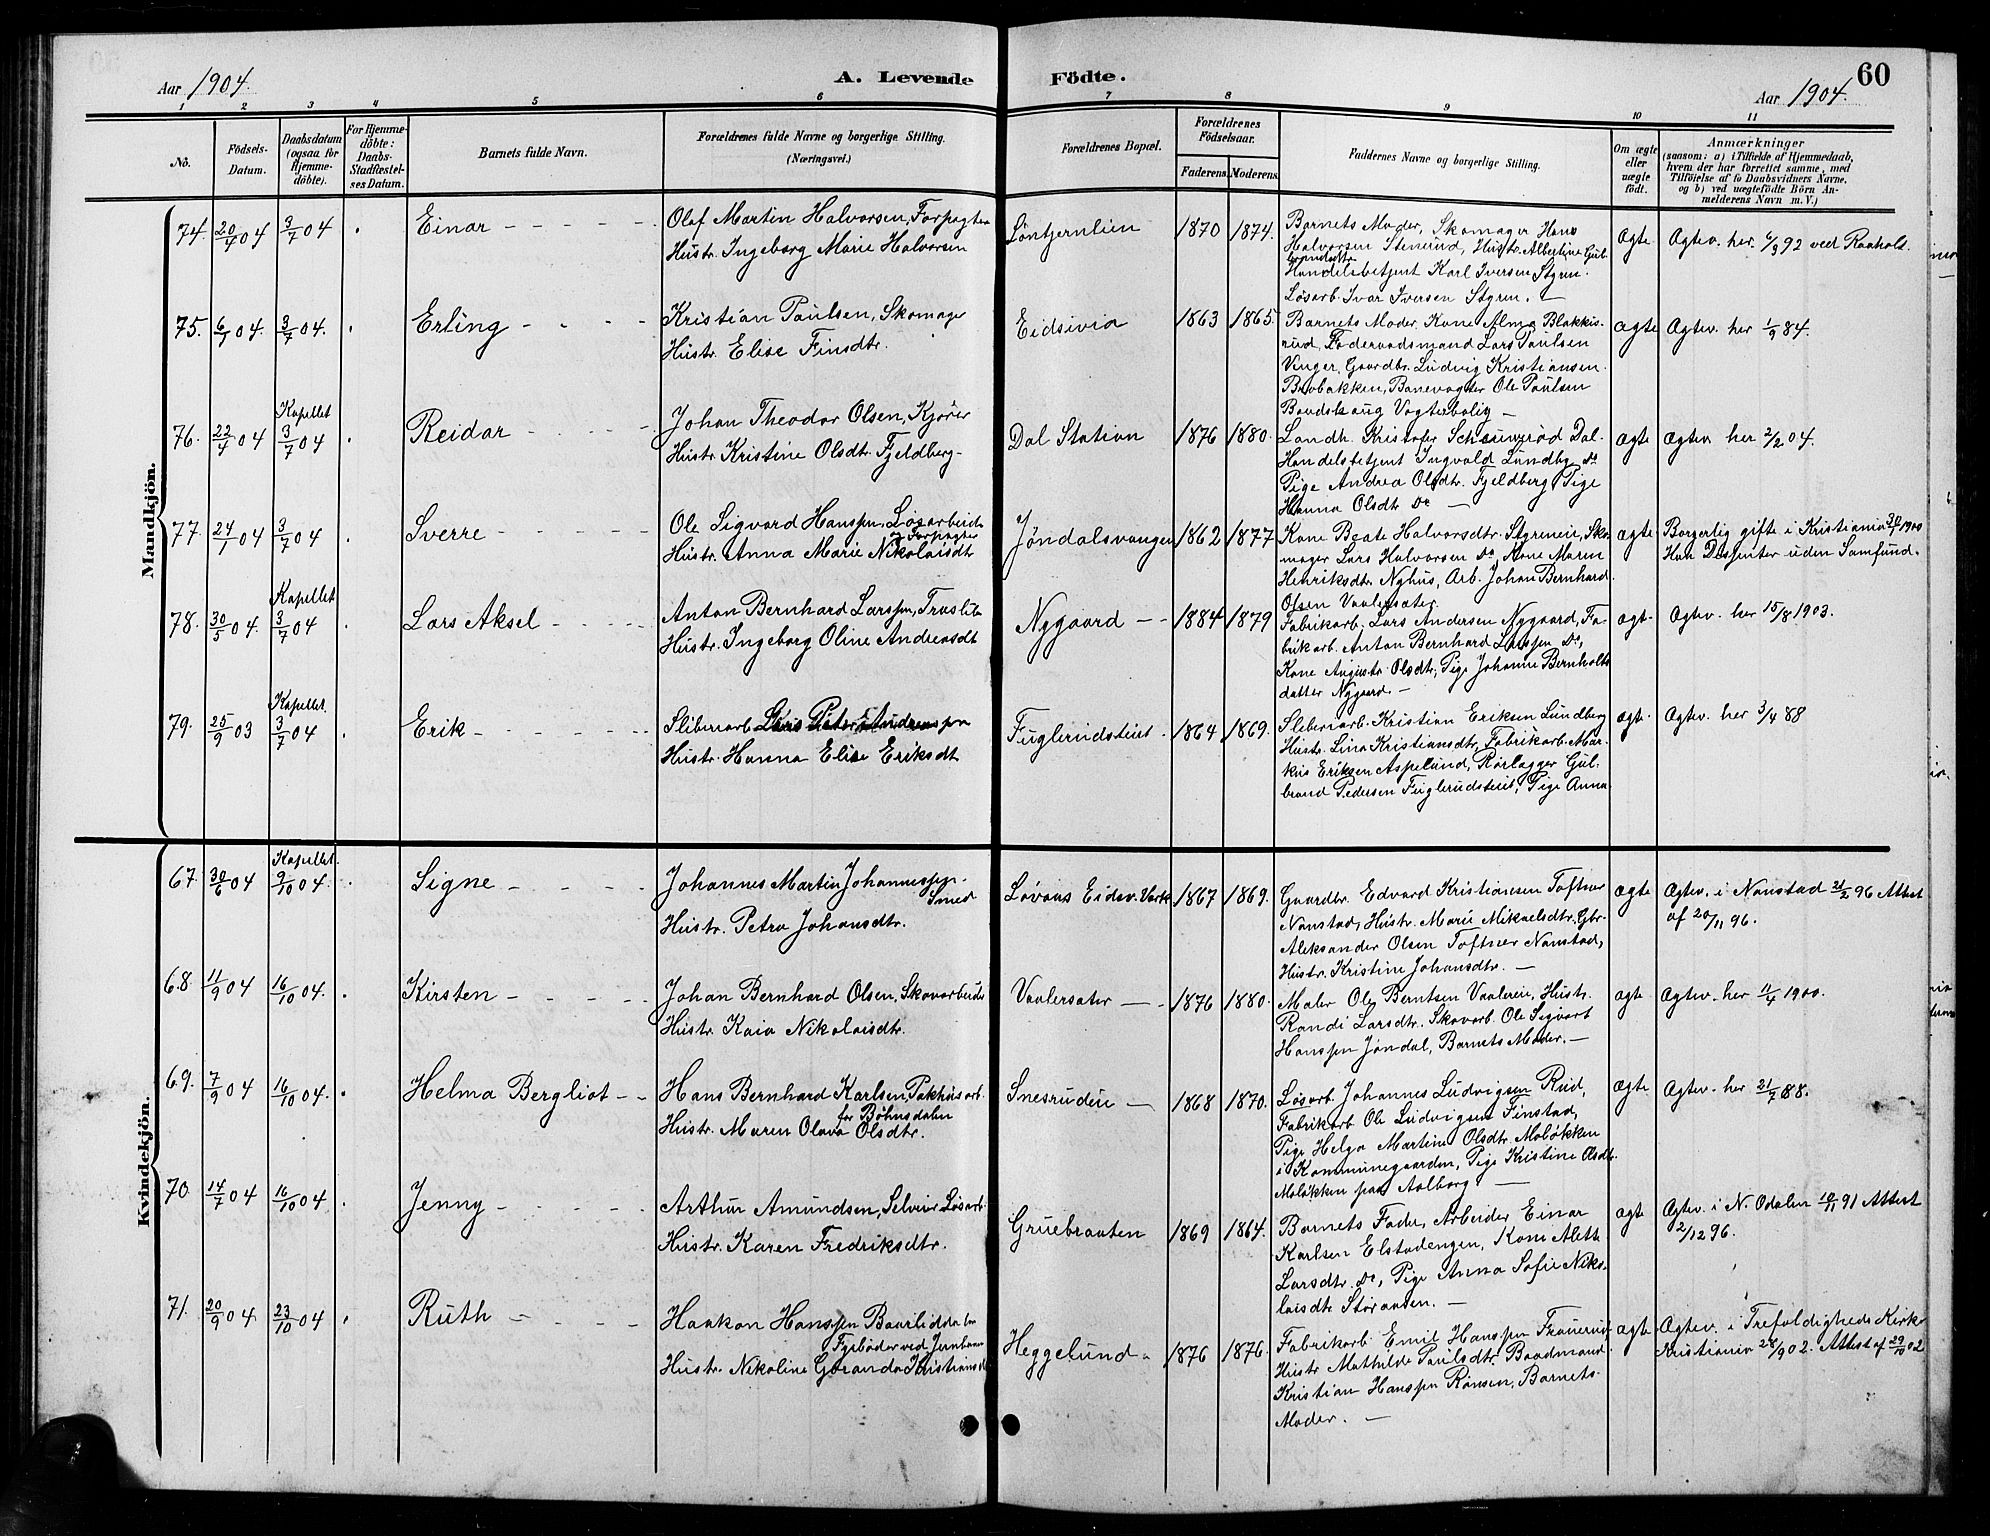 Aar 1904.
A. Levende Födte.
Aar 1904.
60
1 2 3 4 5 6 7 8 9 10 11
Nô.
Födsels-Datum.
Daabsdatum (ogsaa for Hjemme-döbte).
For Hjemme-döbte: Daabs-Stadfæstel-ses Datum.
Barnets fulde Navn.
Forældrenes fulde Navne og borgerlige Stilling. (Næringsvei.)
Forældrenes Bopæl.
Forældrenes Födselsaar.
Faderens. Moderens.
Faddernes Navne og borgerlige Stilling.
Om ægte eller uægte födt.
Anmærkninger
(saasom: a) i Tilfælde af Hjemmedaab,
hvem der har forrettet samme, med
Tilföielse af to Daabsvidners Navne,
og b) ved uægtefödte Börn An-
melderens Navn m. V.)
Mandkjön.
74. 20/4 04 3/7 04 Einar
Olaf Martin Halvorsen, Forpagter
Hustr. Ingeborg Marie Halvorsen
Løntjernlien 1870 1874.
Barnets Moder, Skomager Hans
Halvorsen Stenerud, Hustr. Albertine Gul-
brandsdtr
Handelsbetjent Karl Iversen Styren.
Løsarb. Ivar Iversen Styren.
Ægte Ægtev. her 6/3 92 ved Raaholt.
75. 6/1 04. 3/7 04. Erling
Kristian Paulsen, Skomager
Hustr. Elise Finsdtr.
Eidsivia 1863 1865.
Barnets Moder, Kone Alma Blakkis-
rud, Føderaadsmand Lars Paulsen
Vinger, Gaardbr. Ludvig Kristiansen
Banevogter Ole Paulsen
Vogterbolig
ægte Ægtev. her 1/9 84.
76. 22/4 04 Kapellet 3/7 04 Reidar
Johan Theodor Olsen, Kjører
Hustr. Kristine Olsdtr. Fjeldberg
Dal Station 1876 1880.
Landh. Kristofer Dal.
Handelsbetjent Ingvald Lundby do
Pige Andrea Olsdtr. Fjeldberg, Pige
Hanna Olsdtr. do
ægte Ægtev. her 2/2 04.
77. 24/1 04 3/7 04 Sverre
Ole Sigvard Hanssen, Løsarbeider
og Forpagter
Hustr. Anna Marie Nikolaisdt
Jøndalsvangen 1862 1877
Kone Beate Halvorsdtr. Styreneie, Sko-
mager Lars Halvorsen do, Kone Maren
Henriksdtr. Nyhus, Arb. Johan Bernhard
Olsen Vaalersæter.
ægte Borgerlig gifte i Kristiania 1900
Han Dissenter uden Samfund.
78. 30/5 04. Kapellet 3/7 04 Lars Aksel
Anton Bernhard Larssen,
Hustr. Ingeborg Oline Andreasdt
Nygaard 1884 1879
Fabrikarb. Lars Andersen Nygaard, Fa-
brikarb. Anton Bernhard Larssen do,
Kone Auguste Olsdtr., Pige Johanne Bernholts
datter Nygaard.
ægt. Ægtev. her 15/8 1903.
79. 25/9 03 Kapellet. 3/7 04 Erik
Sliberiarb. Lars Peter Andreassen
Hustr. Hanna Elise Eriksdt
Fuglerudsteiet. 1864 1869.
Sliberiarb. Kristian Eriksen Lundberg
Hustr. Lina Kristiansdtr., Fabrikarb. Mar-
kus Eriksen Aspelund, Rørlægger Gul-
brand Pedersen Fuglerudsteiet, Pige Anna
ægt. Ægtev. her 3/4 88
Kvindekjön.
67. 30/6 04 Kapellet. 9/10 04. Signe
Johannes Martin Johannessen
Smed
Hustr. Petra Johansdtr.
Løvaas Eidsv. Værk 1867 1869.
Gaardbr. Edvard Kristiansen Toftner
Nanstad, Hustr. Marie Mikaelsdtr. Gbr.
Aleksander Olsen Toftner Nanstad,
Hustr. Kristine Johansdtr.
ægte Ægtev. i Nanstad 21/2 96 Attest
af 20/11 96.
68. 11/9 04 16/10 04. Kirsten
Johan Bernhard Olsen, Skovarbeider
Hustr. Kaia Nikolaisdtr.
Vaalersæter 1876 1880.
Maler Ole Berntsen Vaalereie, Hustr.
Randi Larsdtr. Skovarb. Ole Sigvart
Hanssen Jøndal, Barnets Moder.
ægte Ægtev. her 11/4 1900.
69. 7/9 04 16/10 04. Helma Bergliot
Hans Bernhard Karlsen, Pakhusarb.
for Bøhnsdalen
Hustr. Maren Olava Olsdtr.
Snesrudeie 1868 1870.
Løsarb. Johannes Ludvigsen Rud,
Fabrikarb. Ole Ludvigsen Finstad,
Pige Helga Martine Olsdtr. Moløkken
i Kommunegaarden, Pige Kristine Olsdtr.
Moløkken paa Aalborg.
ægte Ægtev. her 21/7 88.
70. 14/7 04 16/10 04 Jenny
Arthur Amundsen, Selveier Løsarb.
Hustr. Karen Fredriksdtr.
Gruebraaten 1869 1864.
Barnets Fader, Arbeider Einar
Karlsen Elstadengen, Kone Alette
Larsdtr. do, Pige Anna Sofie Niko-
laisdtr Støraasen.
ægte Ægtev. i N. Odalen 91 Attest
2/12 96.
71. 20/9 04 23/10 04 Ruth
Haakon Hanssen
Fyrbøder ved Jernbanen
Hustr. Nikoline Kristiansdtr
Heggelund 1876 1876.
Fabrikarb. Emil Hanssen
Hustr. Mathilde Paulsdtr. Baadmand
Kristian Hanssen Rønsen, Barnets
Moder.
ægte Ægtev. i Trefoldigheds Kirke
Kristiania 28/9 02. Attest af 29/10 02